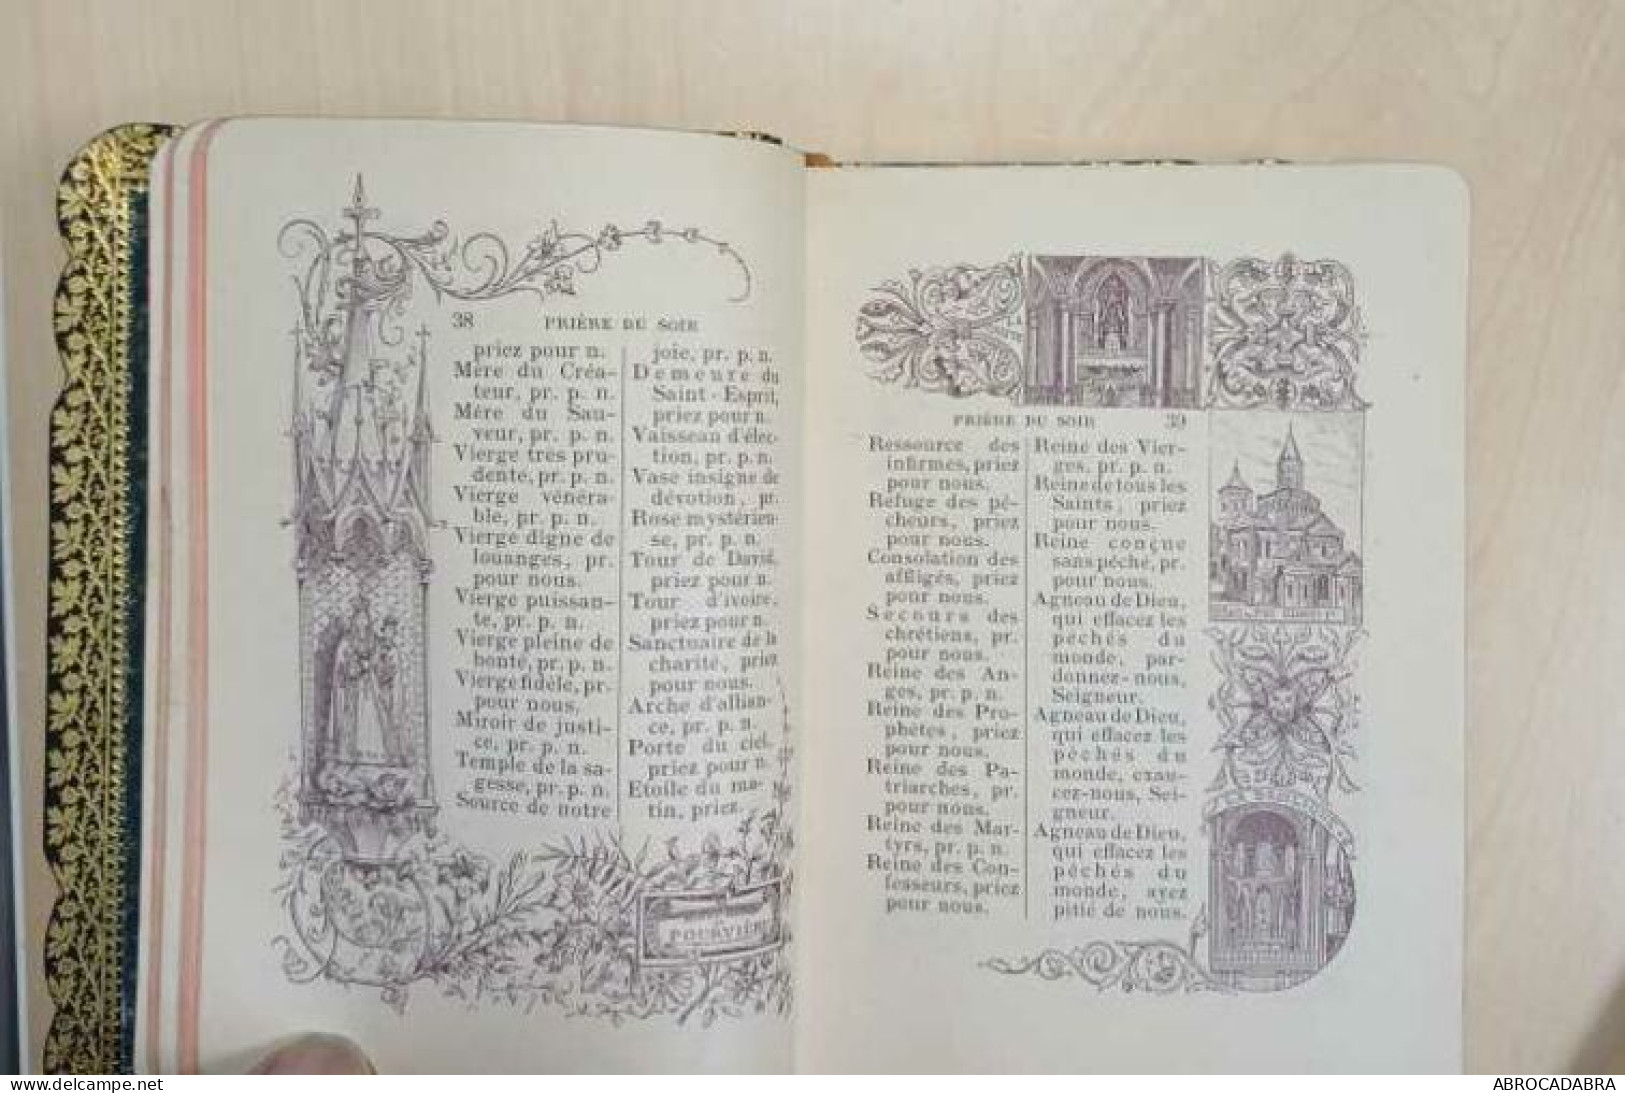 38 PRIÈRE DU SOIR
priez pour n.
Mère du Créa-
teur, pr. p. n.
Mère du Sau-
veur, pr. p. n.
Vierge tres pru-
dente, pr. p. n.
Vierge vénéra-
ble, pr. p. n.
Vierge digne de
louanges, pr.
pour nous.
Vierge puissan-
te, pr. p. n.
Vierge pleine de
bonte, pr. p. n.
Vierge fidèle, pr.
pour nous.
Miroir de justi-
ce, pr. p. n.
Temple de la sa-
gesse, pr. p. n.
Source de notre
joie, pr. p. n.
Demeure du
Saint-Esprit,
priez pour n.
Vaisseau d'élec-
tion, pr. p. n.
Vase insigne de
dévotion, pr.
Rose mystérieu-
se, pr. p. n.
Tour de David,
priez pour n.
Tour d'ivoire,
priez pour n.
Sanctuaire de la
charité, priez
pour nous.
Arche d'allian-
ce, pr. p. n.
Porte du ciel,
priez pour n.
Etoile du ma-
tin, priez
FOURVIÈRE
PRIÈRE DU SOIR 39
Ressource des
infirmes, priez
pour nous.
Refuge des pé-
cheurs, priez
pour nous.
Consolation des
affligés, priez
pour nous.
Secours des
chrétiens, pr.
pour nous.
Reine des An-
ges, pr. p. n.
Reine des Pro-
phètes, priez
pour nous.
Reine des Pa-
triarches, pr.
pour nous.
Reine des Mar-
tyrs, pr. p. n.
Reine des Con-
fesseurs, priez
pour nous.
Reine des Vier-
ges, pr. p. n.
Reine de tous les
Saints, priez
pour nous.
Reine conçue
sans péché, pr.
pour nous.
Agneau de Dieu,
qui effacez les
péchés du
monde, par-
donnez-nous,
Seigneur.
Agneau de Dieu,
qui effacez les
péchés du
monde, exau-
cez-nous, Sei-
gneur.
Agneau de Dieu,
qui effacez les
péchés du
monde, ayez
pitié de nous.
www.delcampe.net
ABROCADABRA